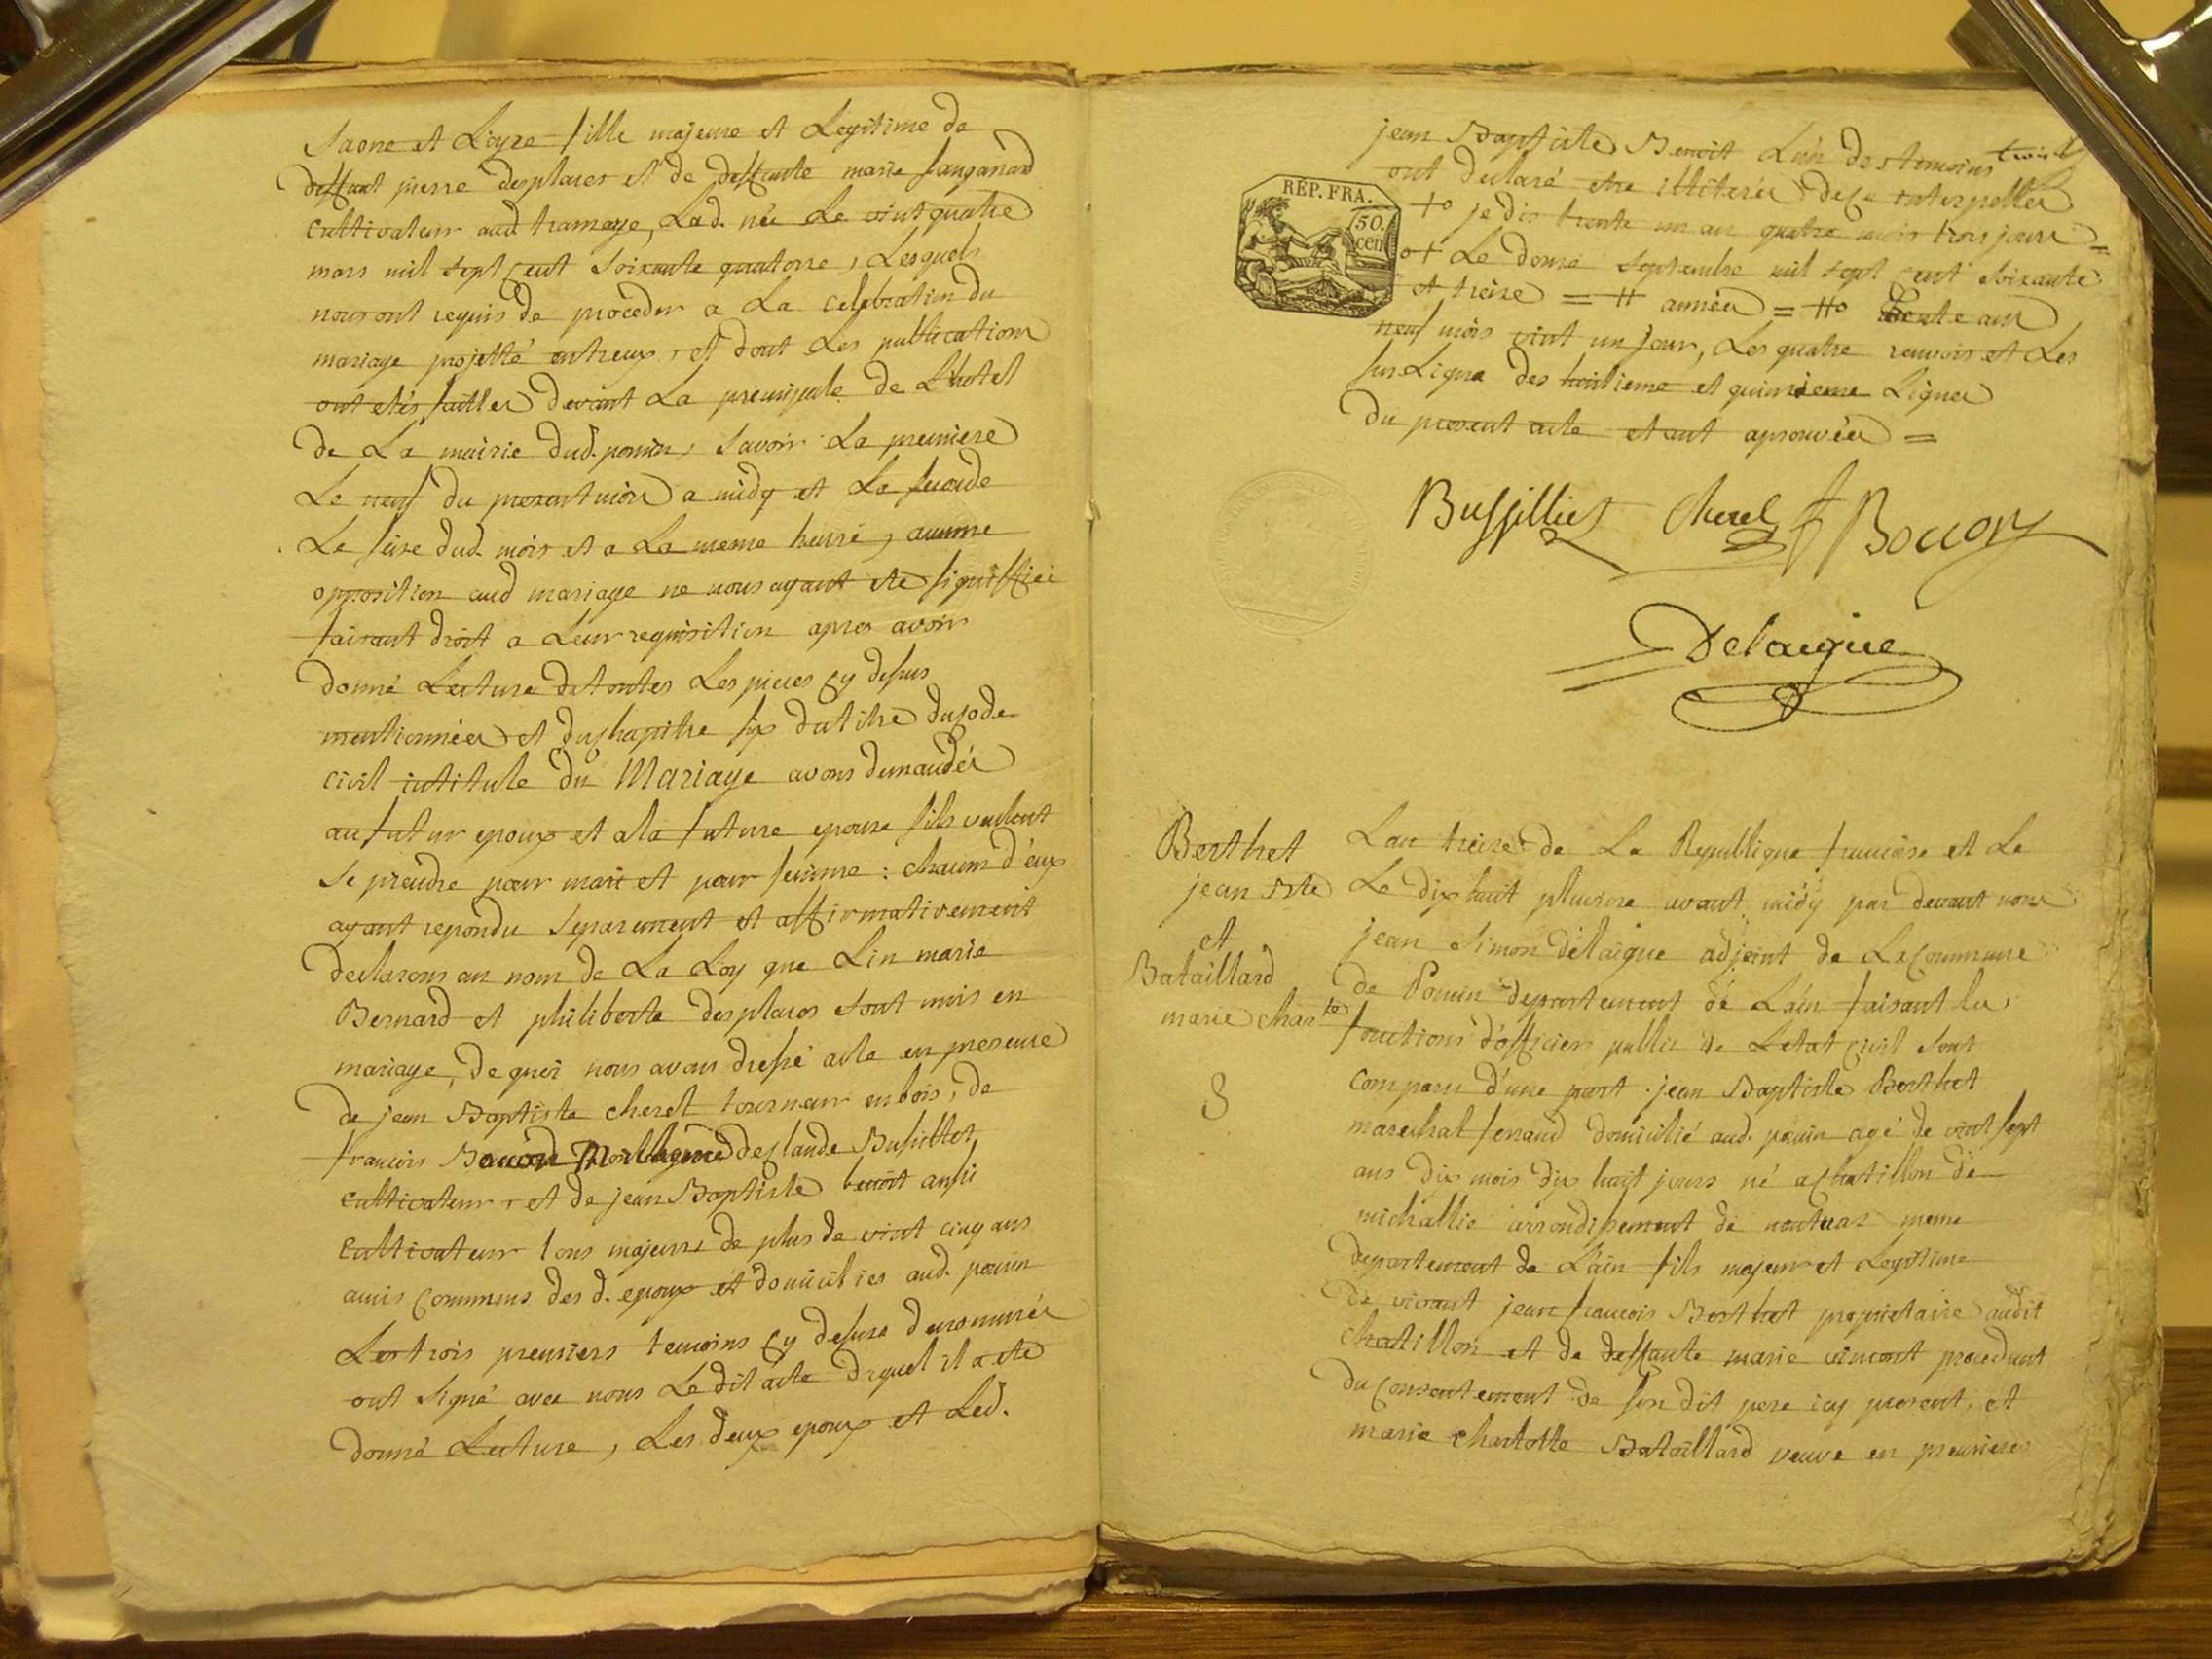 Saone et Loyre fille majeure et Legitime de
deffunt pierre desplaces et de deffunte marie
cultivateur aud tramaye, Lad. née Le vint quatre
mars mil sept cent soixante quatorse, Lesquels
nous ont requis de proceder a La celebration du
mariage projetté entreux, et dont Les publications
ont etés faittes devant La principale de L'hotel
de La mairie dud. ponsin, savoir La premiere
Le neuf du present mois a midy et La seconde
Le seise dud. mois et a La meme heure, aucune
opposition aud mariage ne nous ayant ete signiffiée
faisant droit a Leur requisition apres avoir
donné Lecture de toutes Les pieces cy desus
mentionnées et du chapitre six du titre du code
civil intitulé du Mariage avons demandés
au futur epoux et a la future epouse sils veulent
se prendre pour mari et pour femme : chacun d'eux
ayant repondu separement et affirmativement
declarons au nom de La Loy que Lin marie
Bernard et philiberte desplaces sont unis en
mariage, de quoi nous avons dressé acte en presence
de jean Baptiste cherel tourneur en bois, de
francois de claude
cultivateur, et de jean Baptiste benoit ausi
cultivateur tous majeurs de plus de vint cinq ans
amis communs des d. epoux et domiciliés aud. ponsin
Les trois premiers temoins cy desus denommés
ont signé avec nous Le dit acte duquel il a ete
donné Lecture, Les deux epoux et Led.
jean Baptiste Benoit L'un des temoins
ont declaré etre illiterés de ce interpellés
RÉP. FRA.
50. cen
+o je dis trente un an quatre mois trois jours =
o+ Le dome septembre mil sept cent soixante
et treise = # années = #o trente ans
neuf mois vint un jour, Les quatre renvois et Les
sur Ligne des huitieme et quinsieme Lignes
du present acte etant aprouvées =
Bussilliet Cherel Bocon
Delaigue
Berthet
jean Bte
et
Bataillard
marie charte
Lan treise de La Republique francoise et Le
Le dix huit pluviose avant midy par devant nous
jean Simon delaigue adjoint de La commune
de Ponsin departement de Lain faisant les
fonctions d'officier public de Letat civil sont
comparu d'une part jean Baptiste Berthet
marechal ferrand domicilié aud. ponsin agé de vint sept
ans dix mois dix huit jours né a chatillon de
michallie arrondissement de nantuas meme
departement de Lain fils majeur et Legitime
de vivant jean francois Berthet proprietaire audit
chatillon et de deffunte marie vincent procedant
du consentement de son dit pere icy present, et
marie charlotte Bataillard veuve en premieres